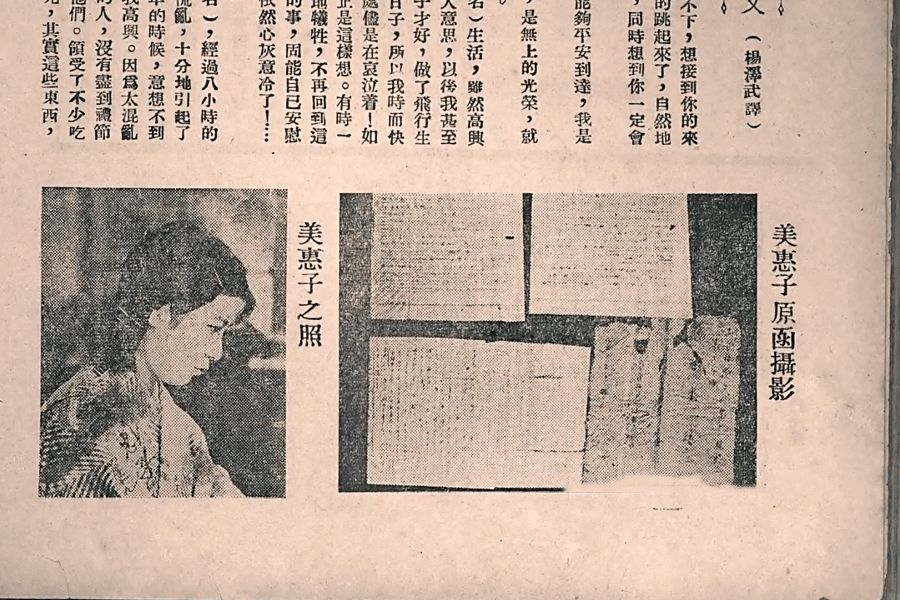 文（楊澤武譯）
不下，想接到你的來
的跳起來了，自然地
，同時想到你一定會
能夠平安到達，我是
，是無上的光榮，就
。
名）生活，雖然高興
人意思，以後我甚至
子才好，做了飛行生
日子，所以我時而快
處儘是在哀泣着！如
正是這樣想。有時一
地犧牲，不再回到這
的事，固能自已安慰
依然心灰意冷了！……
名），經過八小時的
慌亂，十分地引起了
車的時候，意想不到
我高興。因爲太混亂
的人，沒有盡到禮節
他們。領受了不少吃
，其實這些東西，
美惠子原函攝影
美惠子之照